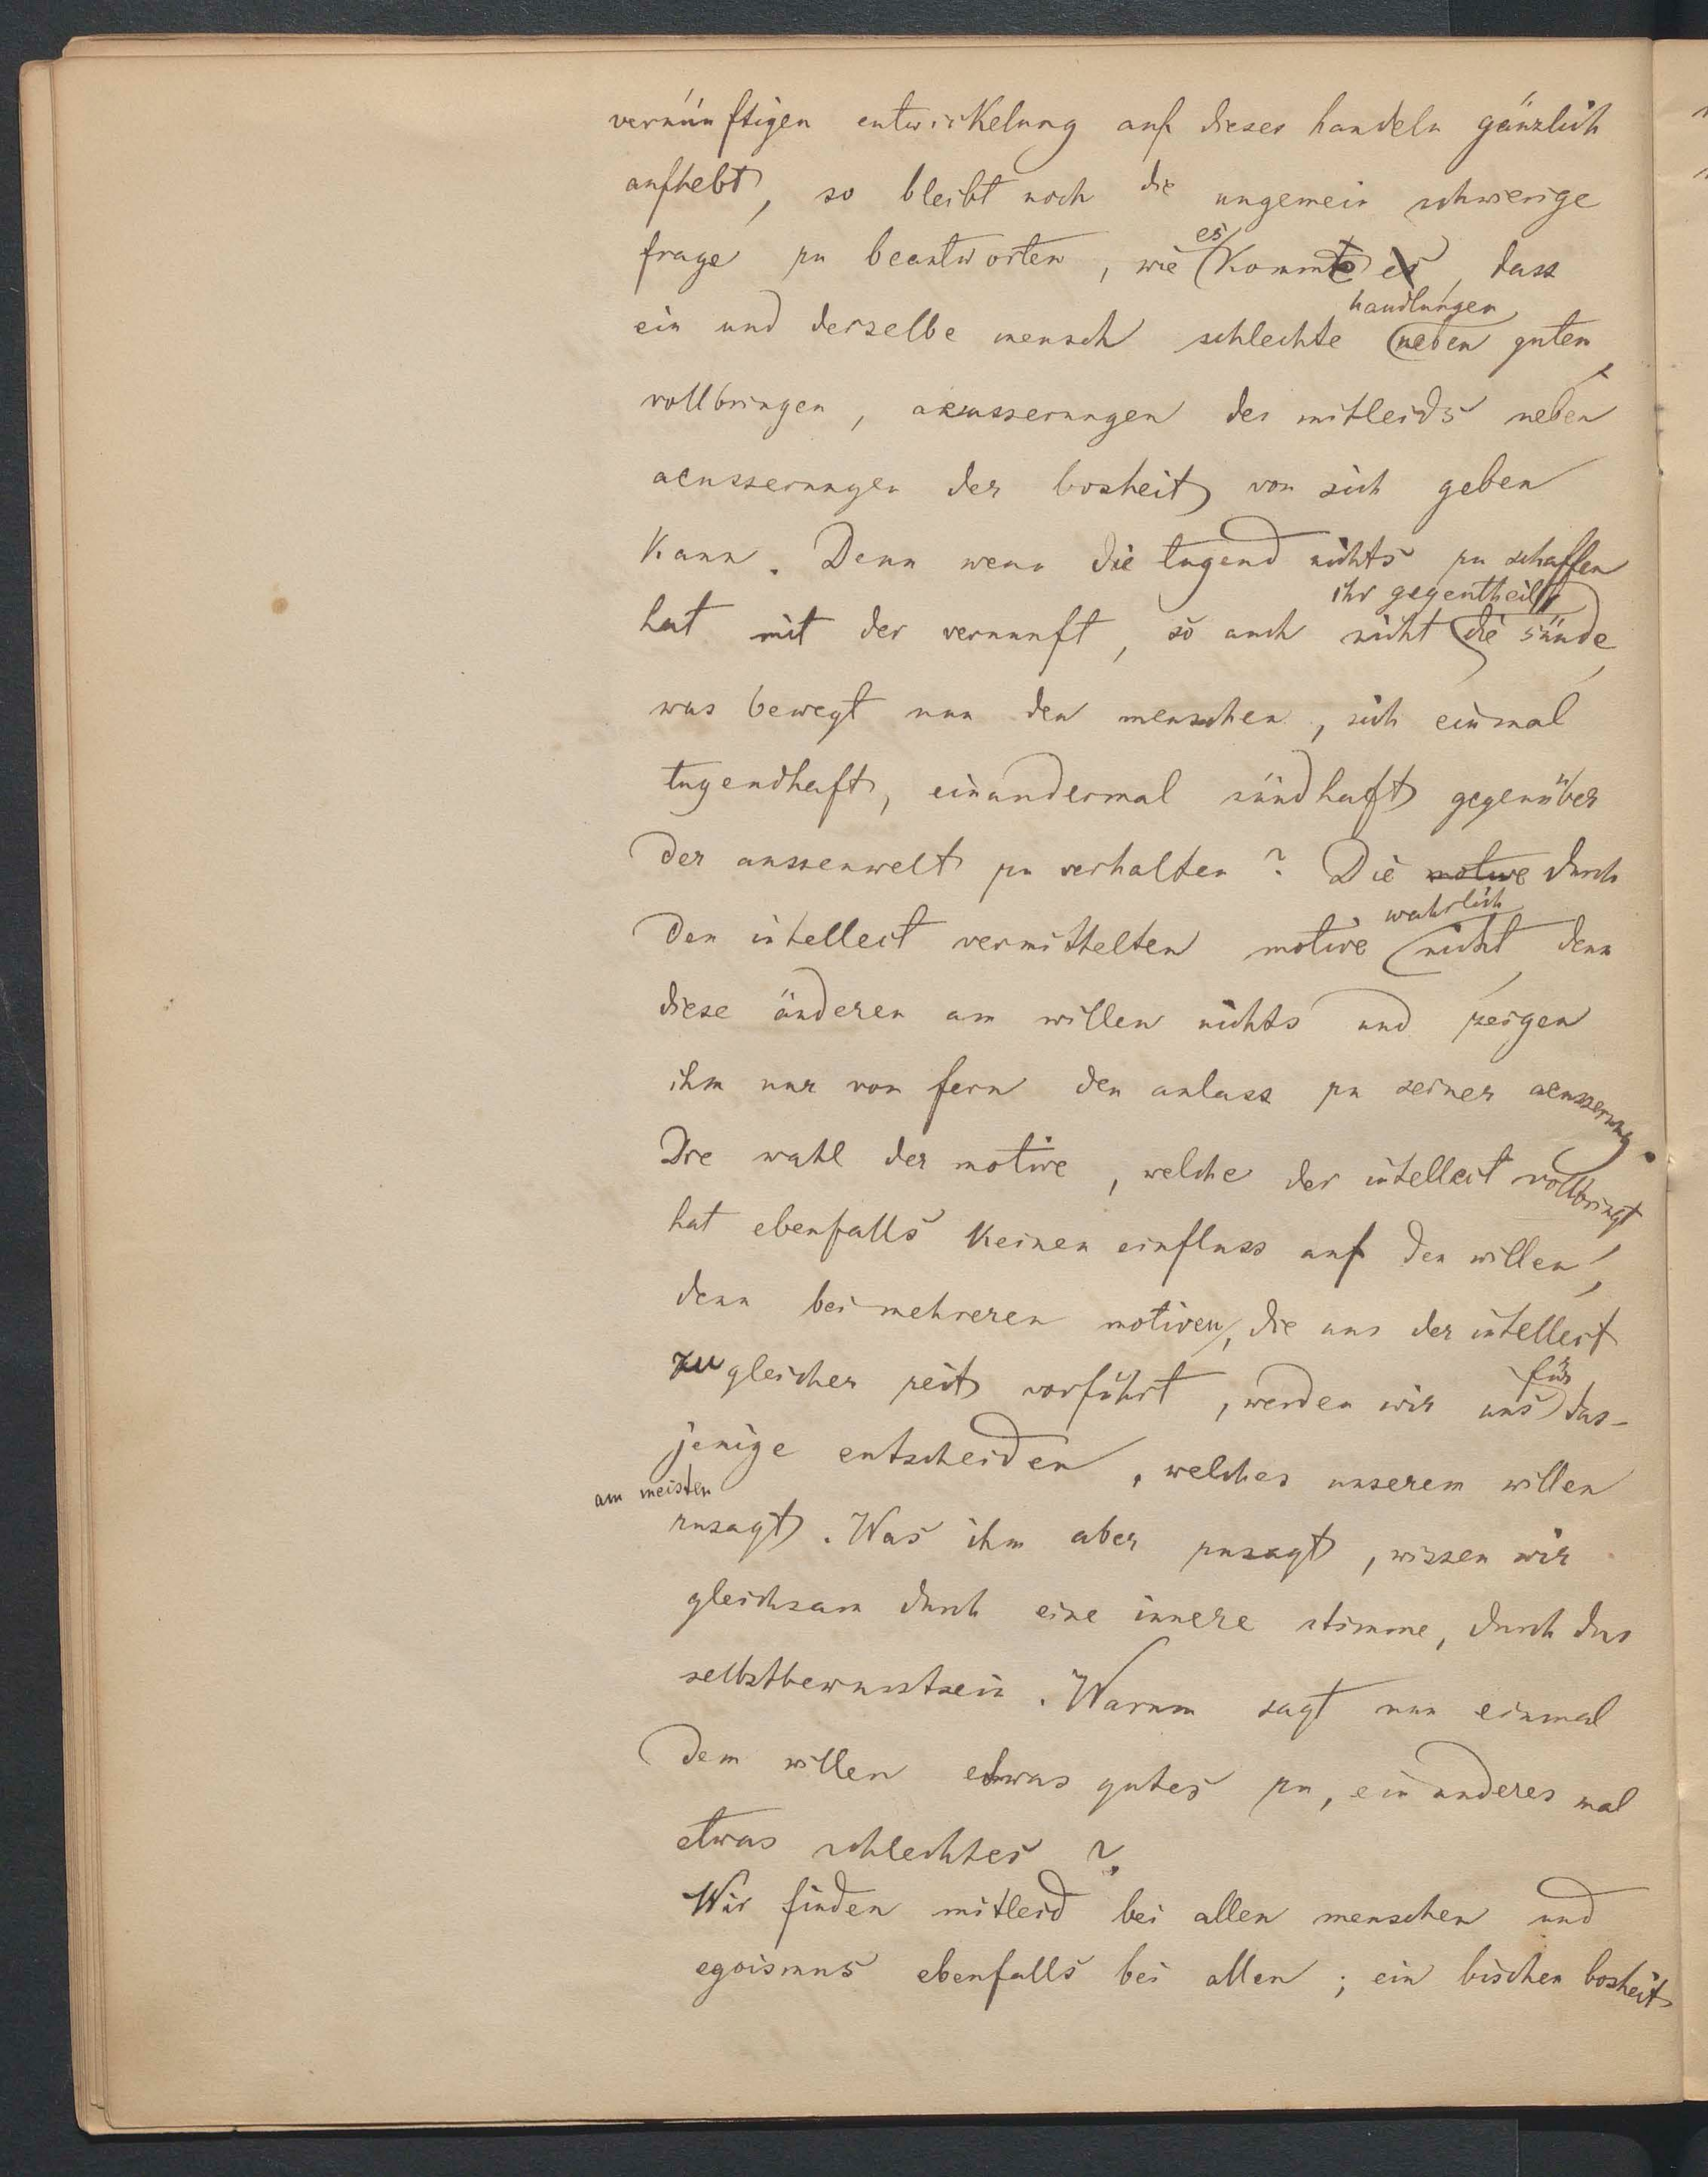 vernünftigen entwickelung auf dieses handeln gänzlich
aufhebt, so bleibt noch die ungemein schwierige
frage zu beantworten, wie es kommt es, dass
ein und derselbe mensch schlechte handlungen neben guten
vollbringen, aeusserungen des mitleids neben
aeusserungen der bosheit von sich geben
kann. Denn wenn die tugend nichts zu schaffen
hat mit der vernunft, so auch nicht ihr gegentheil die sünde,
was bewegt nun den menschen, sich einmal
tugendhaft, einandermal sündhaft gegenüber
der aussenwelt zu verhalten? Die motive durch
den intellect vermittelten motive wahrlich nicht, denn
diese änderen am willen nichts und zeigen
ihm nur von fern den anlass zu seiner aeusserung.
Die wahl der motive, welche der intellect vollbringt,
hat ebenfalls keinen einfluss auf den willen,
denn bei mehreren motiven, die uns der intellect
zu gleicher zeit vorführt, werden wir uns für das-
jenige entscheiden, welches unserem willen
am meisten zusagt. Was ihm aber zusagt, wissen wir
gleichsam durch eine innere stimme, durch das
selbstbewusstsein. Warum sagt nun einmal
dem willen etwas gutes zu, ein anderes mal
etwas schlechtes?
Wir finden mitleid bei allen menschen und
egoismus ebenfalls bei allen; ein bischen bosheit